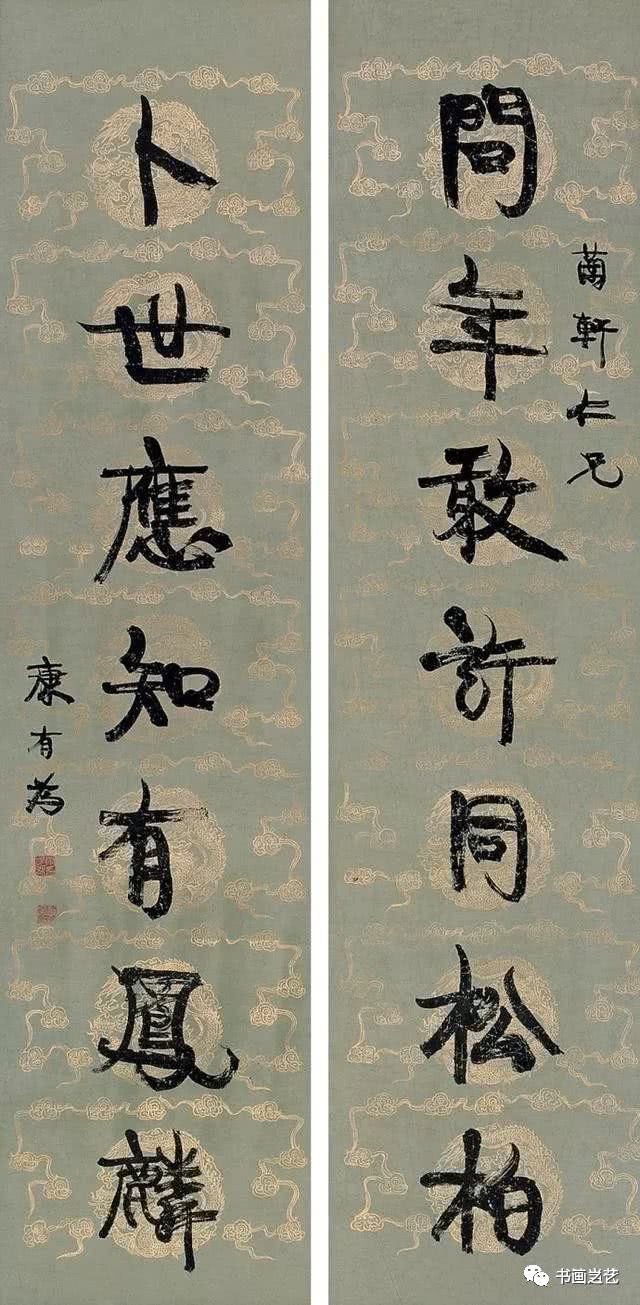 問年敢許同松柏
卜世應知有鳳麟
軒仁兄
康有為
书画之艺